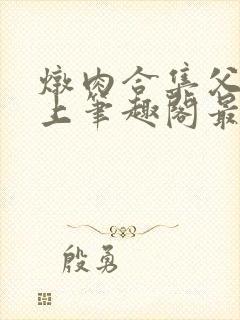 燉肉合集父
上笔趣阁最
殷勇